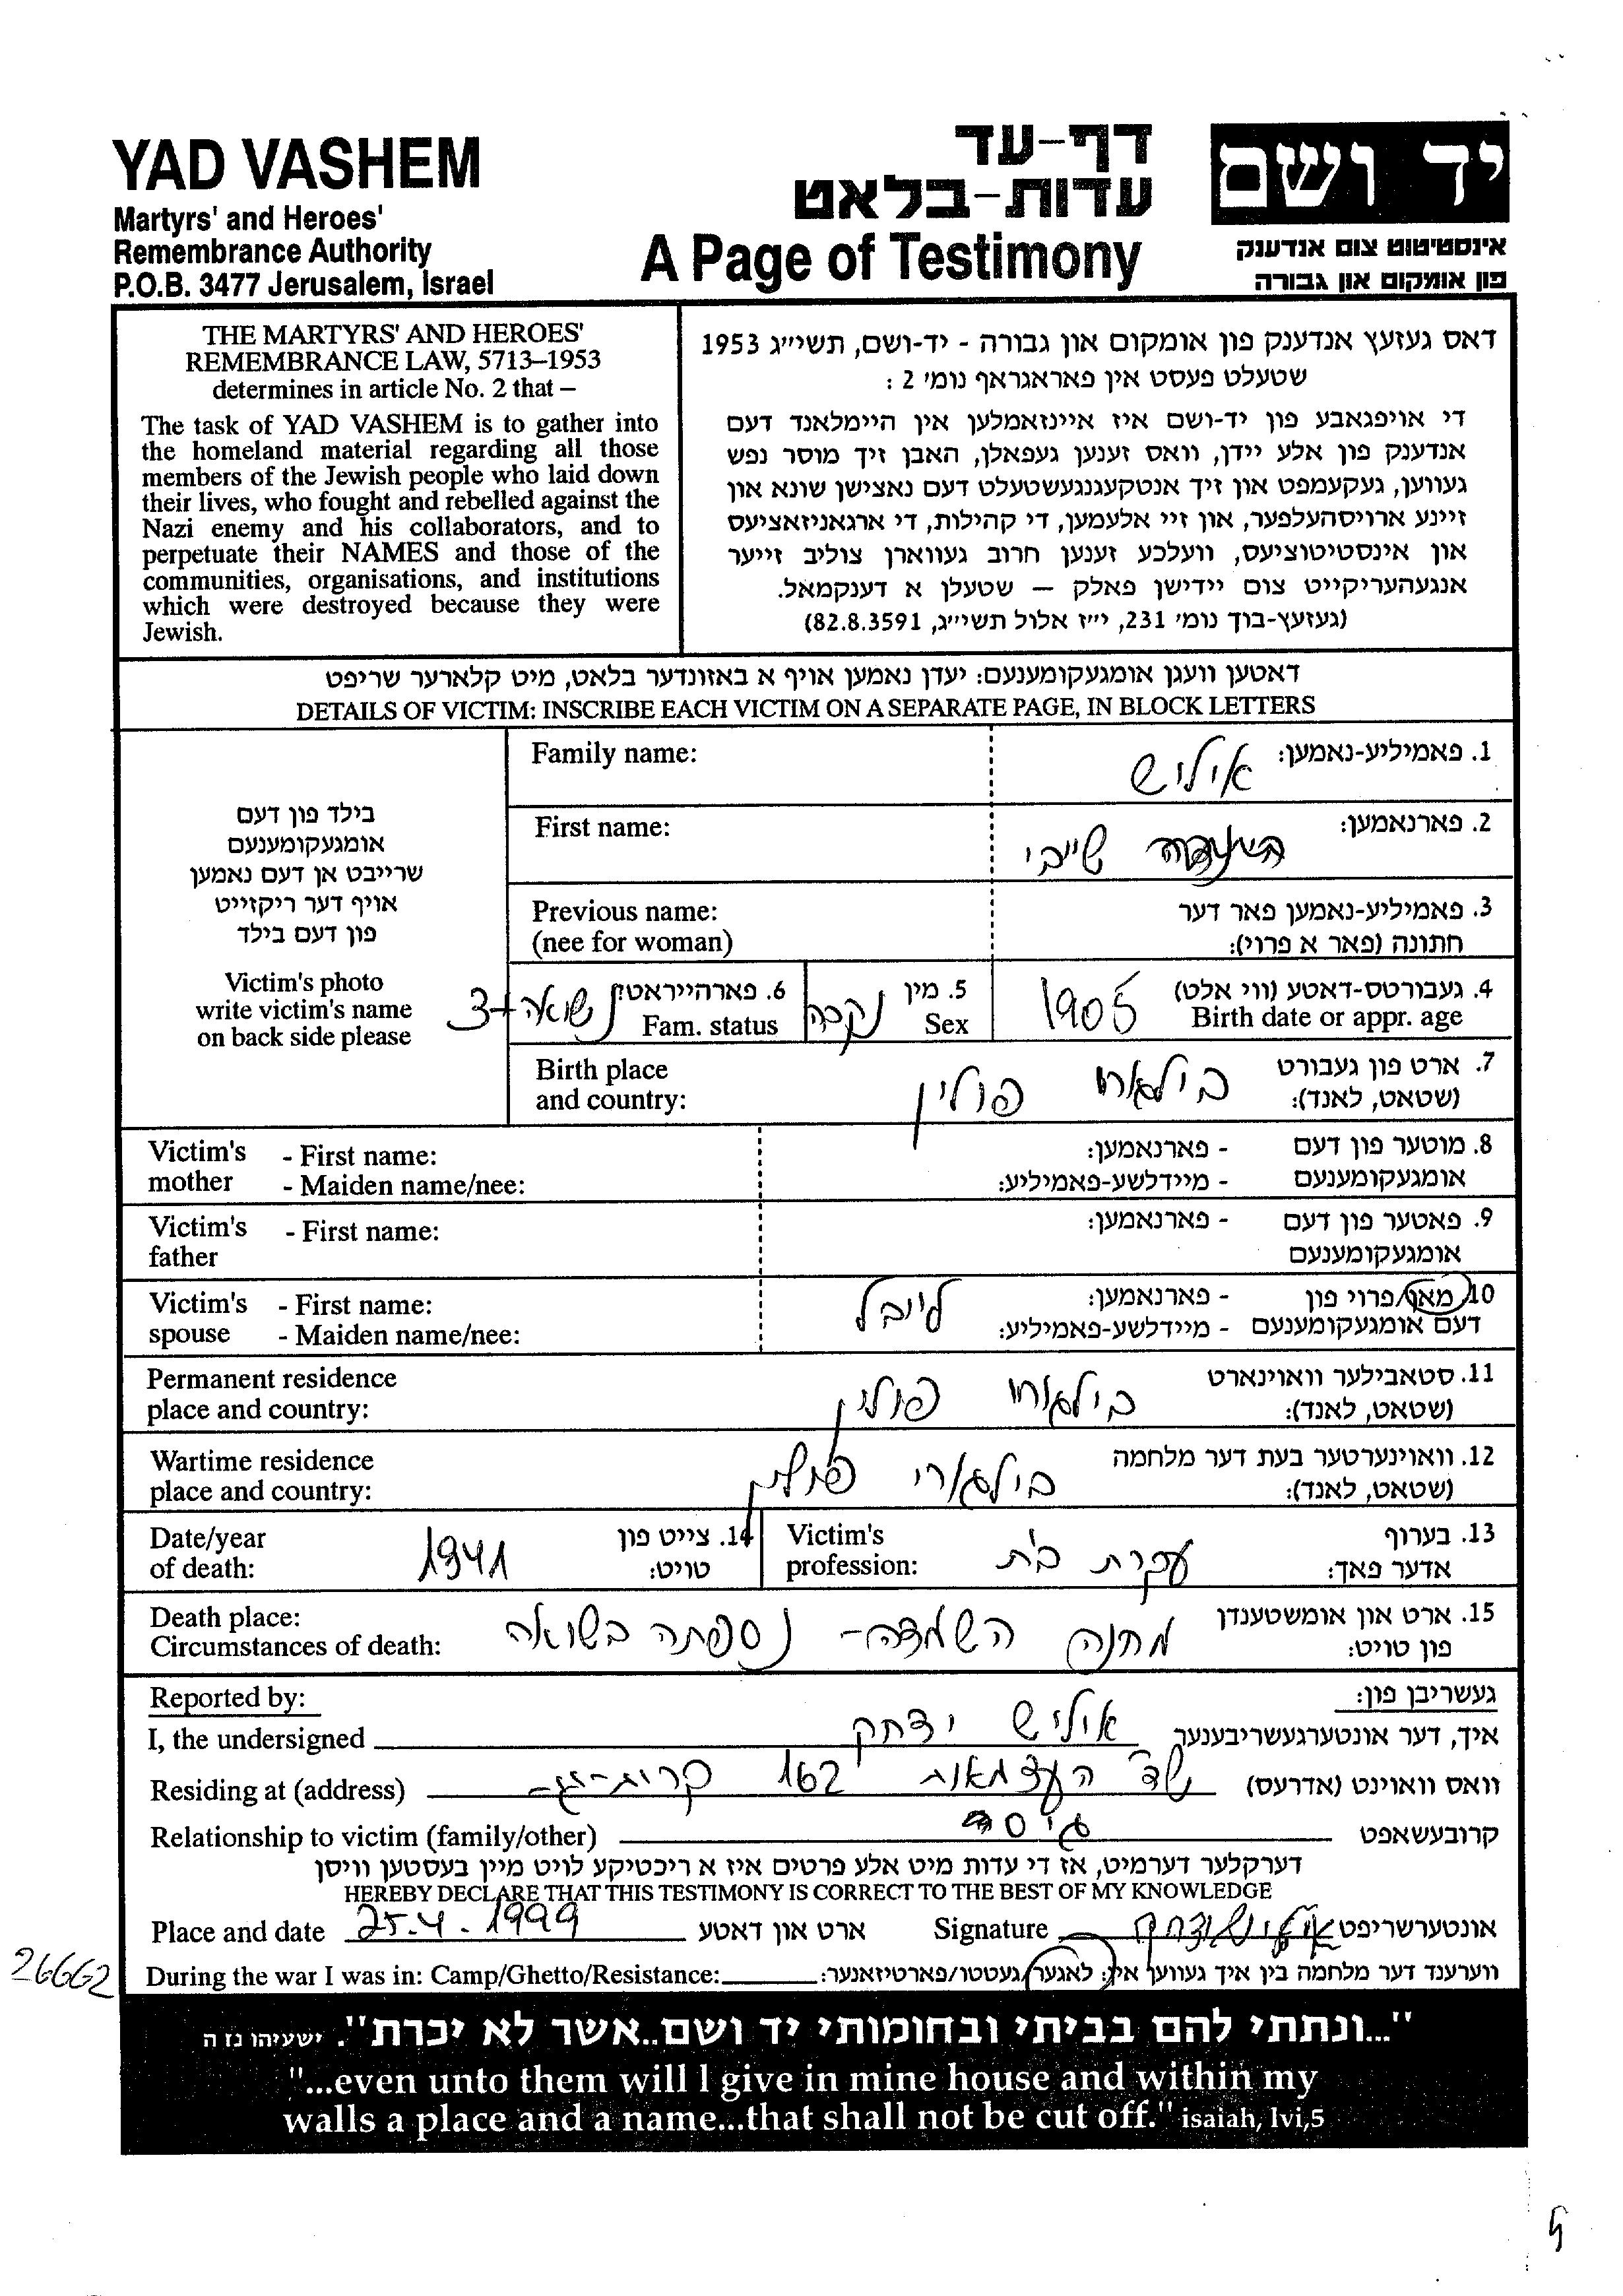 YAD VASHEM
Martyrs' and Heroes'
Remembrance Authority
P.O.B. 3477 Jerusalem, Israel
דף-עד
עדות-בלאט
A Page of Testimony
יד ושם
אינסטיטוט צום אנדענק
פון אומקום און גבורה
THE MARTYRS' AND HEROES'
REMEMBRANCE LAW, 5713–1953
determines in article No. 2 that –
The task of YAD VASHEM is to gather into
the homeland material regarding all those
members of the Jewish people who laid down
their lives, who fought and rebelled against the
Nazi enemy and his collaborators, and to
perpetuate their NAMES and those of the
communities, organisations, and institutions
which were destroyed because they were
Jewish.
דאס געזעץ אנדענק פון אומקום און גבורה - יד-ושם, תשי״ג 1953
שטעלט פעסט אין פאראגראף נומ׳ 2 :
די אויפגאבע פון יד-ושם איז איינזאמלען אין היימלאנד דעם
אנדענק פון אלע יידן, וואס זענען געפאלן, האבן זיך מוסר נפש
געווען, געקעמפט און זיך אנטקעגנגעשטעלט דעם נאצישן שונא און
זיינע ארויסהעלפער, און זיי אלעמען, די קהילות, די ארגאניזאציעס
און אינסטיטוציעס, וועלכע זענען חרוב געווארן צוליב זייער
אנגעהעריקייט צום יידישן פאלק – שטעלן א דענקמאל.
(געזעץ-בוך נומ׳ 231, י״ז אלול תשי״ג, 82.8.3591)
דאטען וועגן אומגעקומענעם: יעדן נאמען אויף א באזונדער בלאט, מיט קלארער שריפט
DETAILS OF VICTIM: INSCRIBE EACH VICTIM ON A SEPARATE PAGE, IN BLOCK LETTERS
בילד פון דעם
אומגעקומענעם
שרייבט אן דעם נאמען
אויף דער ריקזייט
פון דעם בילד
Victim's photo
write victim's name
on back side please
Family name: אוליש 1. פאמיליע-נאמען:
First name: שייבי 2. פארנאמען:
Previous name: 3. פאמיליע-נאמען פאר דער
(nee for woman) חתונה (פאר א פרוי):
4. געבורטס-דאטע (ווי אלט) 1905
Birth date or appr. age
5. מין נקבה
Sex
6. פארהייראט: נשואה +3
Fam. status
Birth place 7. ארט פון געבורט
and country: פולין (שטאט, לאנד):
Victim's - First name: - פארנאמען: 8. מוטער פון דעם
mother - Maiden name/nee: - מיידלשע-פאמיליע: אומגעקומענעם
Victim's - First name: - פארנאמען: 9. פאטער פון דעם
father אומגעקומענעם
Victim's - First name: לייבל - פארנאמען: 10. מאן/פרוי פון
spouse - Maiden name/nee: - מיידלשע-פאמיליע: דעם אומגעקומענעם
Permanent residence 11. סטאבילער וואוינארט
place and country: פולין (שטאט, לאנד):
Wartime residence 12. וואוינערטער בעת דער מלחמה
place and country: בילגורי פולין (שטאט, לאנד):
Date/year 14. צייט פון
of death: 1941 טויט:
Victim's 13. בערוף
profession: עקרת בית אדער פאך:
Death place: 15. ארט און אומשטענדן
Circumstances of death: מחנה השמדה - נספתה בשואה פון טויט:
Reported by: געשריבן פון:
I, the undersigned אוליש יצחק איך, דער אונטערגעשריבענער
Residing at (address) שד' העצמאות 162 קרית-גת וואס וואוינט (אדרעס)
Relationship to victim (family/other) גיסה קרובעשאפט
דערקלער דערמיט, אז די עדות מיט אלע פרטים איז א ריכטיקע לויט מיין בעסטען וויסן
HEREBY DECLARE THAT THIS TESTIMONY IS CORRECT TO THE BEST OF MY KNOWLEDGE
Place and date 25.4.1999 ארט און דאטע Signature אוליש יצחק אונטערשריפט
26662
During the war I was in: Camp/Ghetto/Resistance: ווערענד דער מלחמה בין איך געווען אין: לאגער/געטטו/פארטיזאנער:
"...ונתתי להם בביתי ובחומותי יד ושם..אשר לא יכרת". ישעיהו נז ה
"...even unto them will I give in mine house and within my
walls a place and a name...that shall not be cut off." isaiah, lvi,5